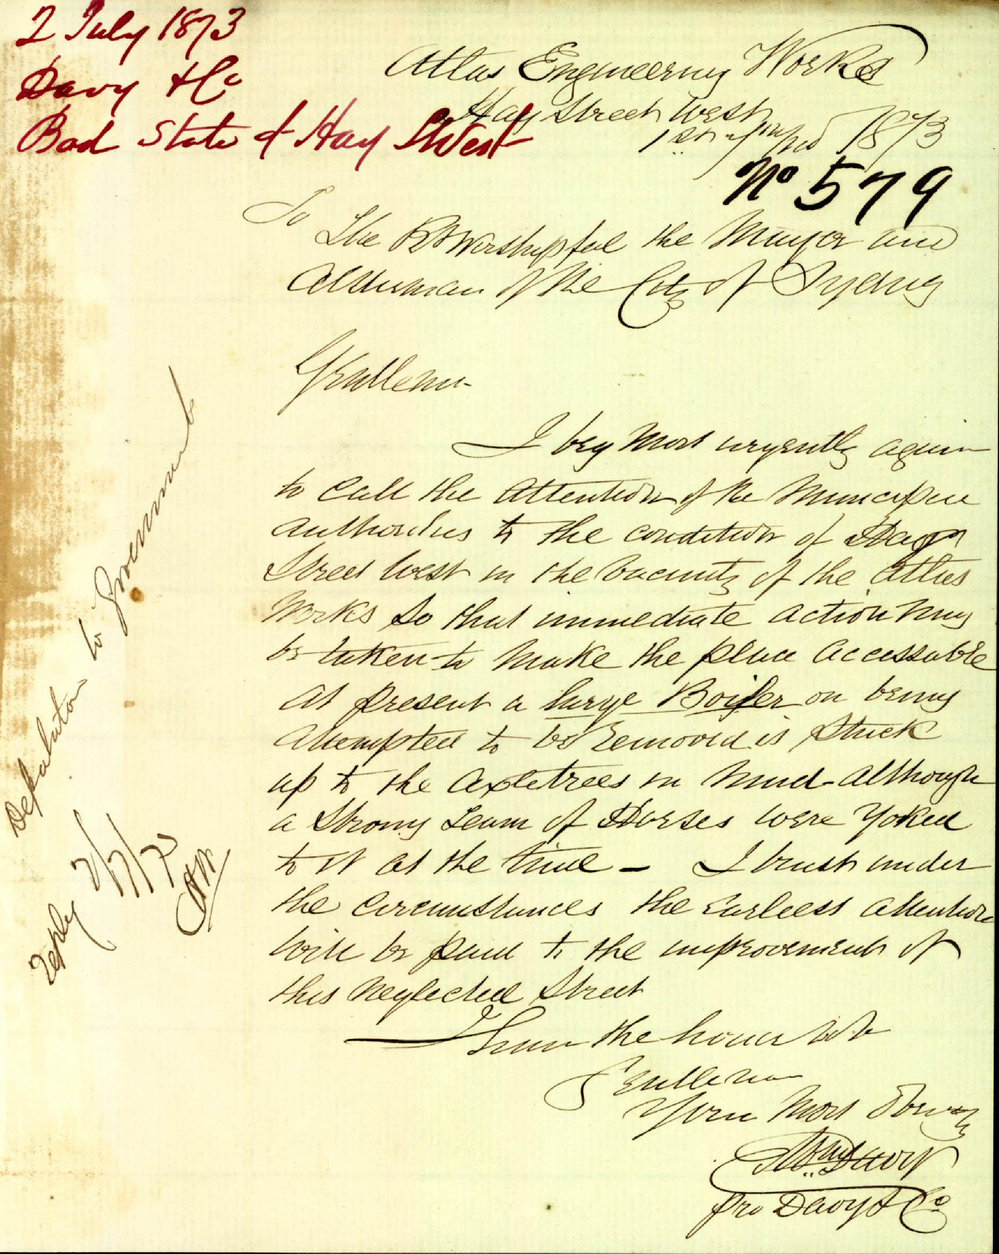 2 July 1873
Davy & Co
Bad State of Hay St West
Atlas Engineering Works
Hay Street West
1873
No 579
To
The Rt Worshipful the Mayor and
Aldermen of the City of Sydney
Gentlemen
I beg most urgently again
to call the attention of the Municipal
authorities to the condition of Hay
Street West in the vacinity of the Atlas
Works so that immediate action may
be taken to make the place accessable
At present a large Boiler on being
attempted to be removed is stuck
up to the axletrees in mud although
a Strong Team of Horses were Yoked
to it at the time — I trust under
the circumstances the earliest attention
will be paid to the improvement of
this neglected Street
I have the honor to be
Gentlemen
Your Most Obedt
Davy
pro Davy & Co
Deputation to Government
reply 7/7/73